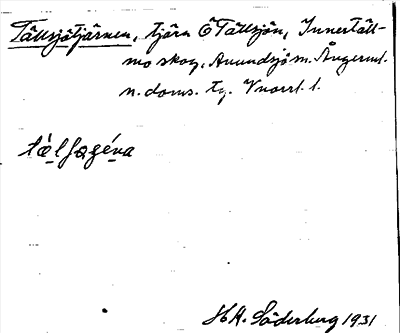 Tällsjötjärnen, tjärn Ö Tällsjön, Innertäll-
mo skog, Anundsjö sn. Ångerml.
n. doms. tg. Vnorrl. l.
tä̀lʃøgéna
H.A. Söderberg 1931